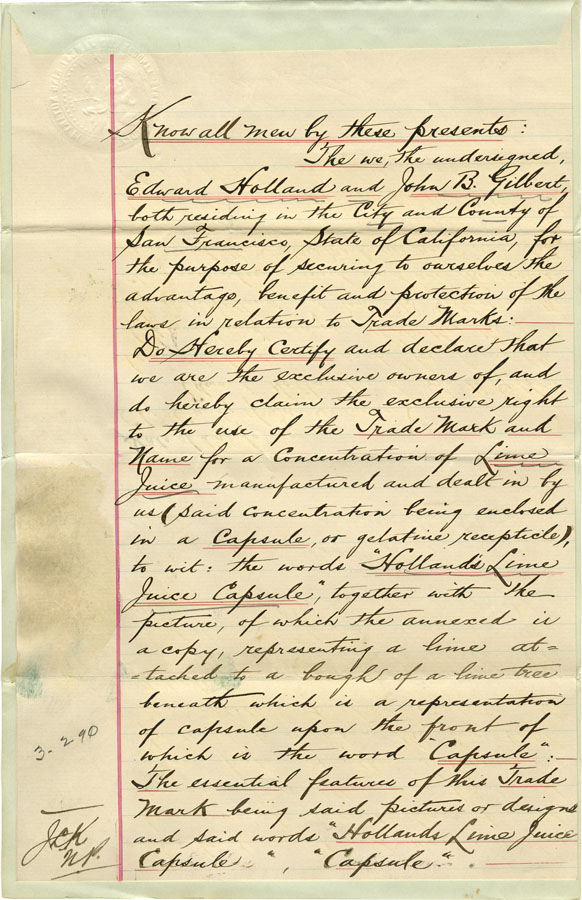 Know all men by these presents:
The we, the undersigned,
Edward Holland and John B. Gilbert,
both residing in the City and County of
San Francisco, State of California, for
the purpose of securing to ourselves the
advantage, benefit and protection of the
laws in relation to Trade Marks:
Do Hereby Certify and declare that
we are the exclusive owners of, and
do hereby claim the exclusive right
to the use of the Trade Mark and
Name for a Concentration of Lime
Juice manufactured and dealt in by
us (said concentration being enclosed
in a Capsule, or gelatine recepticle),
to wit: the words "Hollands Lime
Juice Capsule", together with the
picture, of which the annexed is
a copy, representing a lime at=
=tached to a bough of a lime tree
beneath which is a representation
of capsule upon the front of
which is the word "Capsule":
The essential features of this Trade
Mark being said pictures or designs
and said words "Hollands Lime Juice
Capsule", "Capsule".
3-2 90
JCK
NP.